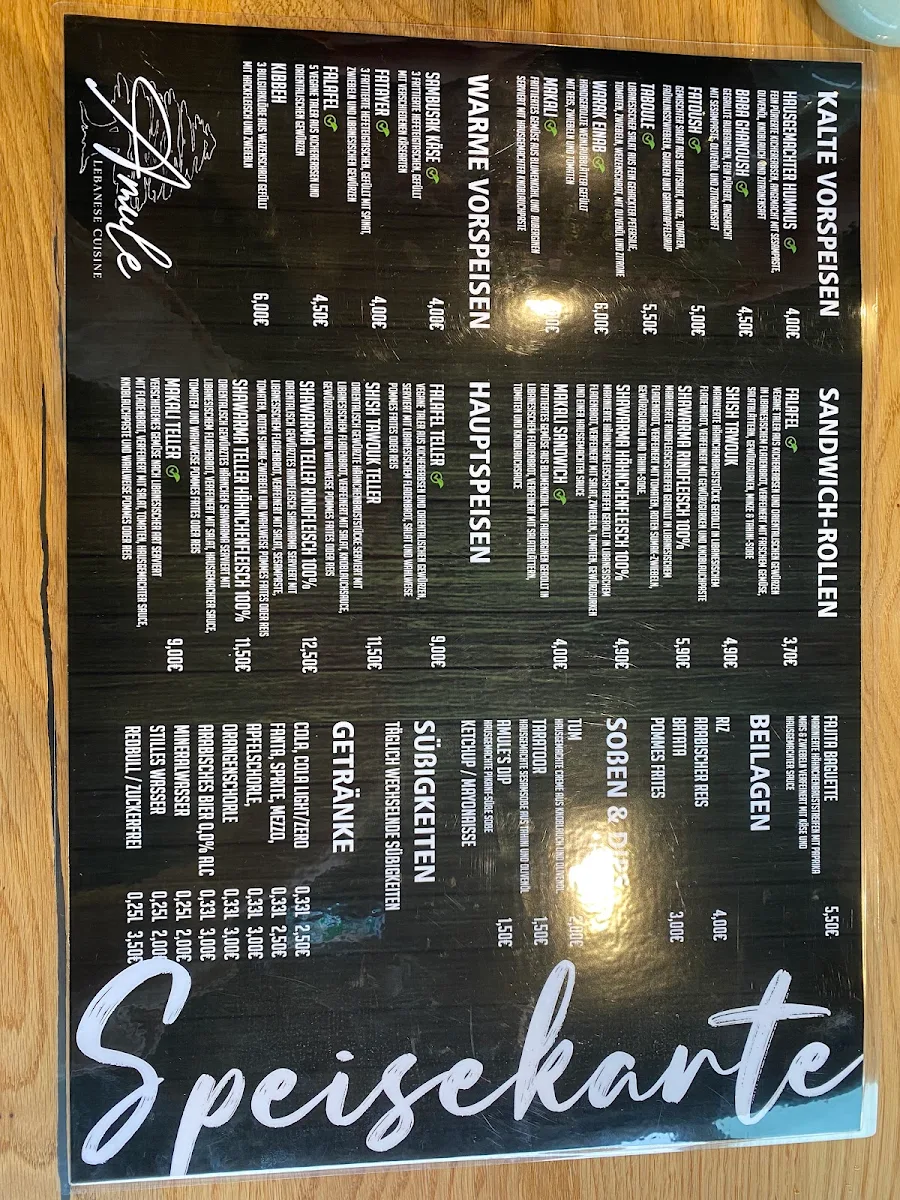 KALTE VORSPEISEN
HAUSGEMACHTER HUMMUS 4,00€
FEIN PÜRIERTE KICHERERBSEN, ANGEMACHT MIT SESAMPASTE,
OLIVENÖL, KNOBLAUCH UND ZITRONENSAFT
BABA GHANOUSH 4,50€
GEGRILLTE AUBERGINEN, FEIN PÜRIERT, ANGEMACHT
MIT SESAMPASTE, OLIVENÖL UND ZITRONENSAFT
FATOUSH 5,00€
GEMISCHTER SALAT AUS BLATTSALAT, MINZE, TOMATEN,
RADIESCHEN, GURKEN UND GRANATAPFELSIRUP
TABOULE 5,50€
LIBANESISCHER SALAT AUS FEIN GEHACKTER PETERSILIE,
TOMATEN, ZWIEBELN, WEIZENSCHROT, MIT OLIVENÖL UND ZITRONE
WARAK ENAB 6,00€
HANDGEROLLTE WEINBLÄTTER GEFÜLLT
MIT REIS, ZWIEBELN UND TOMATEN
MAKALI
FRITTIERTES GEMÜSE AUS BLUMENKOHL UND AUBERGINEN
SERVIERT MIT HAUSGEMACHTER KNOBLAUCHPASTE
WARME VORSPEISEN
SAMBUSAK KÄSE 4,00€
3 FRITTIERTE HEFETEIGTASCHEN, GEFÜLLT
MIT VERSCHIEDENEN KÄSEARTEN
FATTAYER 4,00€
3 FRITTIERTE HEFETEIGTASCHEN, GEFÜLLT MIT SPINAT,
ZWIEBELN UND LIBANESISCHEN GEWÜRZEN
FALAFEL 4,50€
5 VEGANE TALER AUS KICHERERBSEN UND
ORIENTALISCHEN GEWÜRZEN
KIBBEH 6,00€
3 BULGURKLÖSSE AUS WEIZENSCHROT GEFÜLLT
MIT HACKFLEISCH UND ZWIEBELN
Amule
LEBANESE CUISINE
SANDWICH-ROLLEN
FALAFEL 3,70€
VEGANE TALER AUS KICHERERBSE UND ORIENTALISCHEN GEWÜRZEN
IN LIBANESISCHEM FLADENBROT, VERFEINERT MIT FRISCHEM GEMÜSE,
SALATBLÄTTERN, GEWÜRZGURKEN, MINZE & TAHIN-SOßE
SHISH TAWOUK 4,90€
MARINIERTE HÄHNCHENBRUSTSTÜCKE GEROLLT IN LIBANESISCHEM
FLADENBROT, VERFEINERT MIT GEWÜRZGURKEN UND KNOBLAUCHPASTE
SHAWARMA RINDFLEISCH 100% 5,90€
MARINIERTE RINDFLEISCHSTREIFEN GEROLLT IN LIBANESISCHEM
FLADENBROT, VERFEINERT MIT TOMATEN, ROTER SUMAK-ZWIEBELN,
GEWÜRZGURKEN UND TAHIN-SOßE.
SHAWARMA HÄHNCHENFLEISCH 100% 4,90€
MARINIERTE HÄHNCHENFLEISCHSTREIFEN GEROLLT IN LIBANESISCHEM
FLADENBROT, VERFEINERT MIT SALAT, ZWIEBELN, TOMATEN, GEWÜRZGURKEN
UND EINER HAUSGEMACHTEN SAUCE
MAKALI SANDWICH 4,00€
FRITTIERTES GEMÜSE AUS BLUMENKOHL UND AUBERGINEN GEROLLT IN
LIBANESISCHEM FLADENBROT, VERFEINERT MIT SALATBLÄTTERN,
TOMATEN UND KNOBLAUCHPASTE
HAUPTSPEISEN
FALAFEL TELLER 9,00€
VEGANE TALER AUS KICHERERBSEN UND ORIENTALISCHEN GEWÜRZEN,
SERVIERT MIT LIBANESISCHEM FLADENBROT, SALAT UND WAHLWEISE
POMMES FRITES ODER REIS
SHISH TAWOUK TELLER 11,50€
ORIENTALISCH GEWÜRZTE HÄHNCHENBRUSTSTÜCKE SERVIERT MIT
LIBANESISCHEM FLADENBROT, VERFEINERT MIT SALAT, KNOBLAUCHSAUCE,
GEWÜRZGURKEN UND WAHLWEISE POMMES FRITES ODER REIS
SHAWARMA TELLER RINDFLEISCH 100% 12,50€
ORIENTALISCH GEWÜRZTES RINDFLEISCH SHAWARMA SERVIERT MIT
LIBANESISCHEM FLADENBROT, VERFEINERT MIT SALAT, SESAMPASTE,
TOMATEN, ROTER SUMAK-ZWIEBELN UND WAHLWEISE POMMES FRITES ODER REIS
SHAWARMA TELLER HÄHNCHENFLEISCH 100% 11,50€
ORIENTALISCH GEWÜRZTES HÄHNCHEN SHAWARMA SERVIERT MIT
LIBANESISCHEM FLADENBROT, VERFEINERT MIT SALAT, HAUSGEMACHTER SAUCE,
TOMATEN UND WAHLWEISE POMMES FRITES ODER REIS
MAKALI TELLER 9,00€
VERSCHIEDENES GEMÜSE NACH LIBANESISCHER ART SERVIERT
MIT FLADENBROT, VERFEINERT MIT SALAT, TOMATEN, HAUSGEMACHTER SAUCE,
KNOBLAUCHPASTE UND WAHLWEISE POMMES ODER REIS
FAJITA BAGUETTE 5,50€
MARINIERTE HÄHNCHENBRUSTSTREIFEN MIT PAPRIKA
MAIS & ZWIEBELN VERFEINERT MIT KÄSE UND
HAUSGEMACHTER SAUCE
BEILAGEN
RIZ 4,00€
ARABISCHER REIS
BATATA 3,00€
POMMES FRITES
SOßEN & DIPS
TUM 2,00€
HAUSGEMACHTE CREME AUS KNOBLAUCH UND OLIVENÖL
TARATOOR 1,50€
HAUSGEMACHTE SESAMSOßE AUS TAHIN UND OLIVENÖL
AMULE'S DIP 1,50€
HAUSGEMACHTE PIKANT-SÜßE SOßE
KETCHUP / MAYONAISSE
SÜßIGKEITEN
TÄGLICH WECHSELNDE SÜßIGKEITEN
GETRÄNKE
COLA, COLA LIGHT/ZERO 0,33L 2,50€
FANTA, SPRITE, MEZZO, 0,33L 2,50€
APFELSCHORLE, 0,33L 3,00€
ORANGENSCHORLE 0,33L 3,00€
ARABISCHES BIER 0,0% ALC 0,33L 3,00€
MINERALWASSER 0,25L 2,00€
STILLES WASSER 0,25L 2,00€
REDBULL / ZUCKERFREI 0,25L 3,50€
Speisekarte